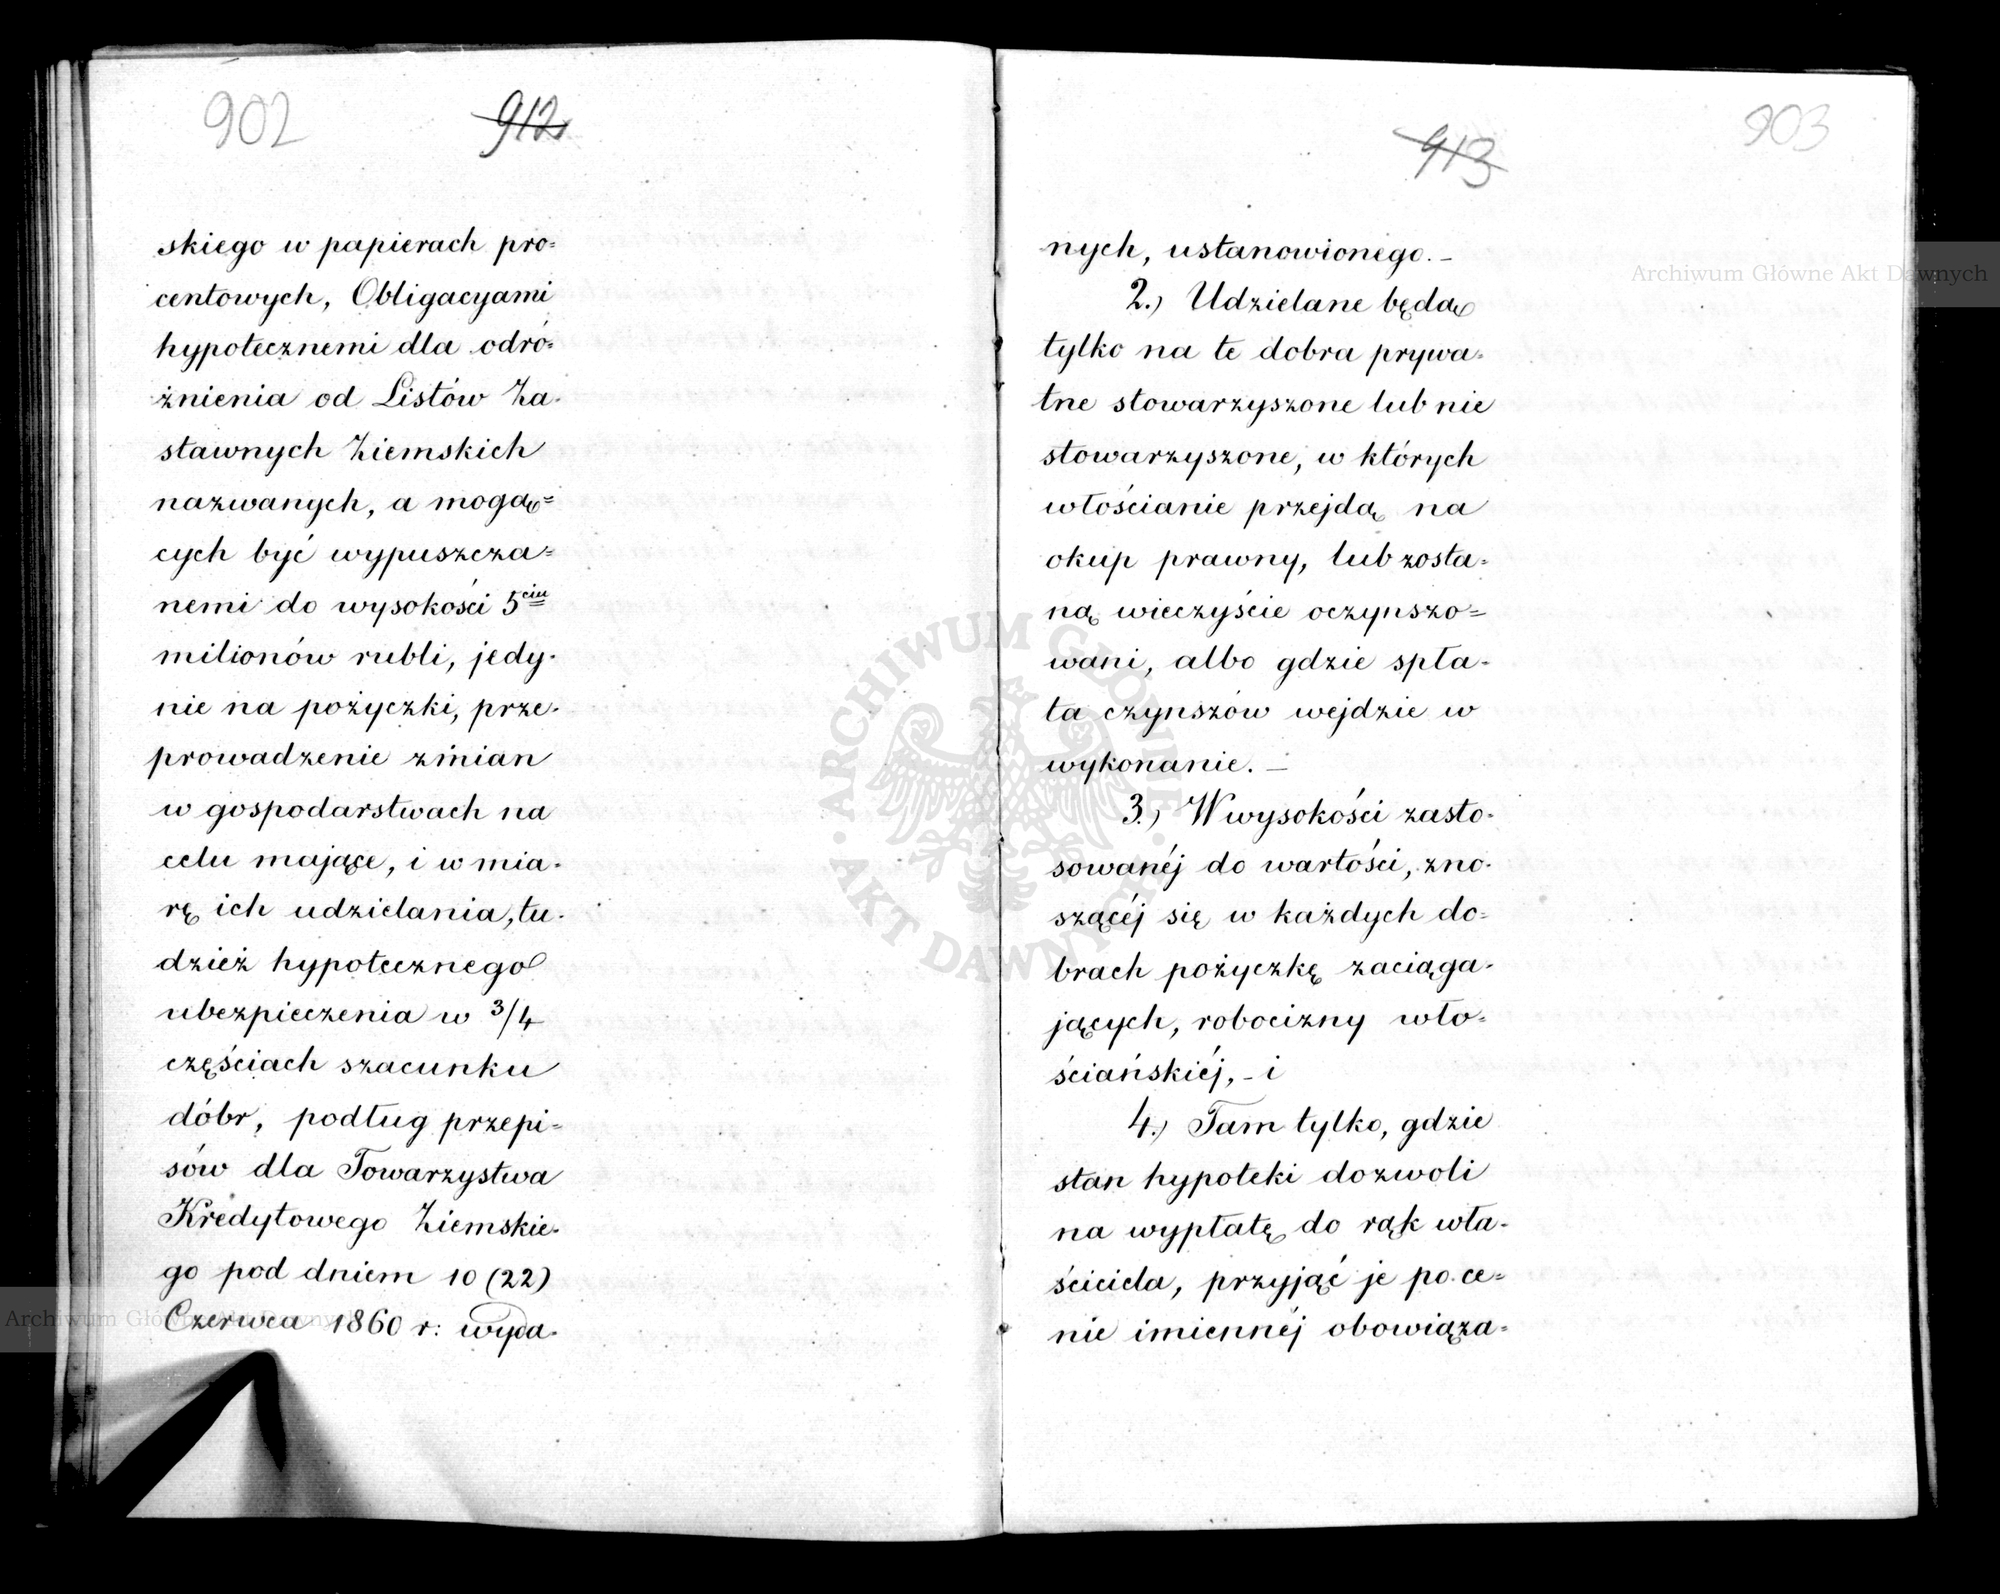 902
912
skiego w papierach pro=
centowych, Obligacyami
hypotecznemi dla odró=
żnienia od Listów Za-
stawnych Ziemskich
nazwanych, a mogą=
cych być wypuszcza=
nemi do wysokości 5ciu
milionów rubli, jedy-
nie na pożyczki, prze-
prowadzenie zmian
w gospodarstwach na
celu mające, i w mia-
rę ich udzielania, tu-
dzież hypotecznego
ubezpieczenia w 3/4
częściach szacunku
dóbr, podług przepi=
sów dla Towarzystwa
Kredytowego Ziemskie-
go pod dniem 10 (22)
Czerwca 1860 r: wyda-
913
903
nych, ustanowionego. –
2.) Udzielane będą
tylko na te dobra prywa-
tne stowarzyszone lub nie
stowarzyszone, w których
włościanie przejdą na
okup prawny, lub zosta-
ną wieczyście oczynszo=
wani, albo gdzie spła-
ta czynszów wejdzie w
wykonanie. –
3.) W wysokości zasto-
sowanéj do wartości, zno-
szącéj się w każdych do-
brach pożyczkę zaciąga-
jących, robocizny wło-
ściańskiéj, – i
4.) Tam tylko, gdzie
stan hypoteki dozwoli
na wypłatę do rąk wła-
ściciela, przyjąć je po ce-
nie imiennéj obowiąza-
Archiwum Główne Akt Dawnych
Archiwum Główne Akt Dawnych
ARCHIWUM GŁÓWNE AKT DAWNYCH